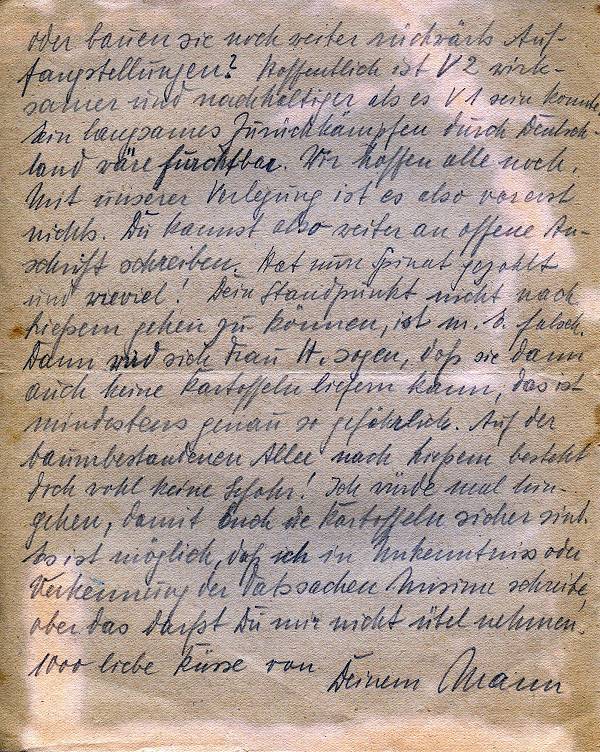 oder bauen sie noch weiter rückwärts Auf-
fangstellungen? Hoffentlich ist V 2 wirk-
samer und nachhaltiger als es V 1 sein konnte.
Ein langsames Zurückkämpfen durch Deutsch-
land wäre furchtbar. Wir hoffen alle noch.
Mit unserer Verlegung ist es also vorerst
nichts. Du kannst also weiter an offene An-
schrift schreiben. Hat nun Spinat gezahlt
und wieviel! Dein Standpunkt nicht nach
gehen zu können, ist m. E. falsch.
Dann wird sich Frau H. sagen, daß sie dann
auch keine Kartoffeln liefern kann, das ist
mindestens genau so gefährlich. Auf der
baumbestandenen Allee nach besteht
doch wohl keine Gefahr! Ich würde mal hin-
gehen, damit Euch die Kartoffeln sicher sind.
Es ist möglich, daß ich in Unkenntniss oder
Verkennung der Tatssachen Unsinn schreibe,
aber das darfst Du mir nicht übel nehmen.
1000 liebe Küsse von
Deinem Mann